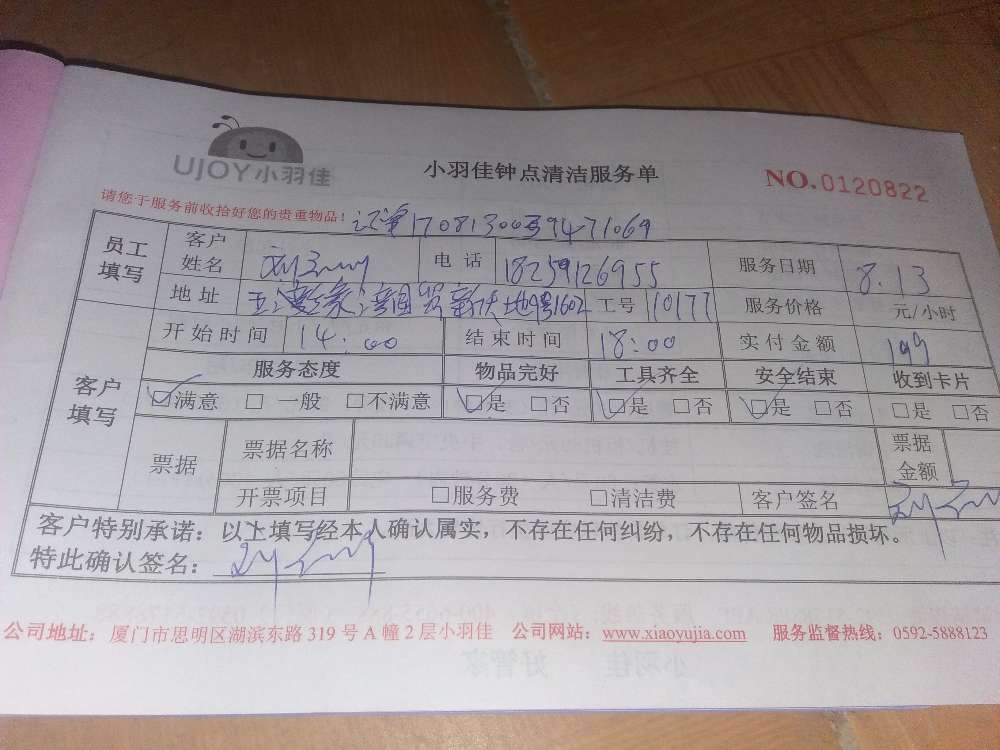 UJOY小羽佳
小羽佳钟点清洁服务单
NO.0120822
请您于服务前收拾好您的贵重物品！
1708130039471069
员工填写 客户姓名 刘 电话 18259126955 服务日期 8.13
地址 国贸新天地 1602 工号 110177 服务价格 元/小时
客户填写 开始时间 14:00 结束时间 18:00 实付金额 199
服务态度 物品完好 工具齐全 安全结束 收到卡片
☑满意 □一般 □不满意 ☑是 □否 ☑是 □否 ☑是 □否 □是 □否
票据 票据名称 票据金额
开票项目 □服务费 □清洁费 客户签名 刘
客户特别承诺：以上填写经本人确认属实，不存在任何纠纷，不存在任何物品损坏。
特此确认签名： 刘
公司地址：厦门市思明区湖滨东路319号A幢2层小羽佳 公司网站：www.xiaoyujia.com 服务监督热线：0592-5888123